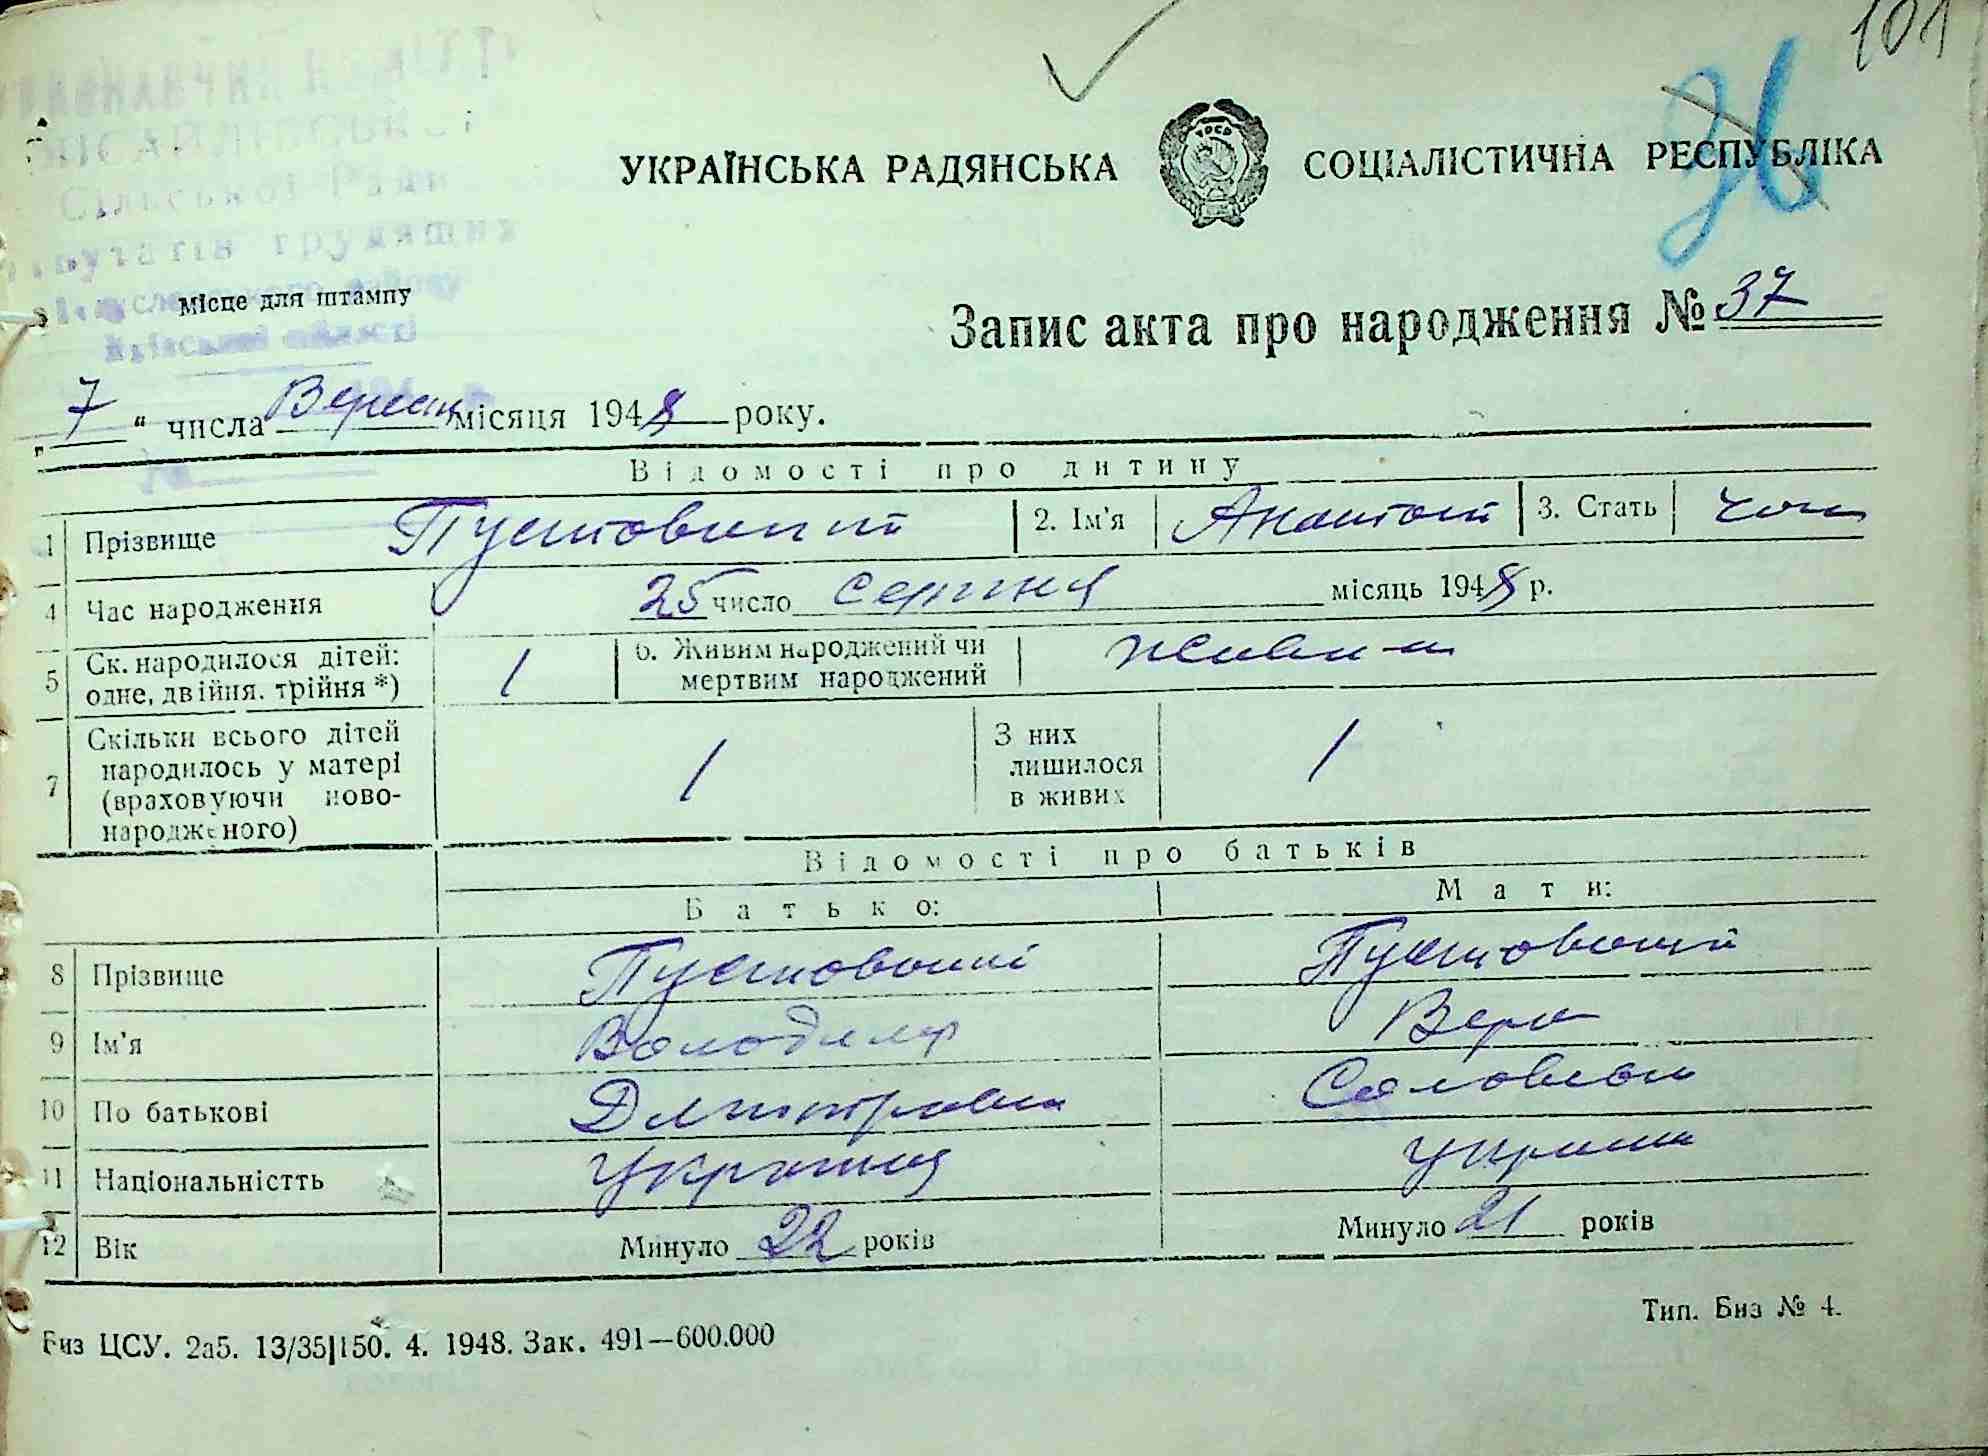 101
36
УКРАЇНСЬКА РАДЯНСЬКА СОЦІАЛІСТИЧНА РЕСПУБЛІКА
Сільської Ради
депутатів трудящих
Місце для штампу
Київської області
Запис акта про народження № 37
„ 7 “ числа Вересня місяця 1948 року.
Відомості про дитину
1 Прізвище Пустовий 2. Ім'я Анатолій 3. Стать чол
4 Час народження 25 число серпня місяць 1948 р.
5 Ск. народилося дітей: одне, двійня. трійня *) 1 6. Живим народжений чи мертвим народжений живим
7 Скільки всього дітей народилось у матері (враховуючи ново-народженого) 1 З них лишилося в живих 1
Відомості про батьків
Батько: Мати:
8 Прізвище Пустовий Пустовий
9 Ім'я Володимир Вера
10 По батькові Дмитрович
11 Національністть
12 Вік Минуло 22 років Минуло 21 років
Биз ЦСУ. 2а5. 13/35|150. 4. 1948. Зак. 491—600.000
Тип. Биз № 4.